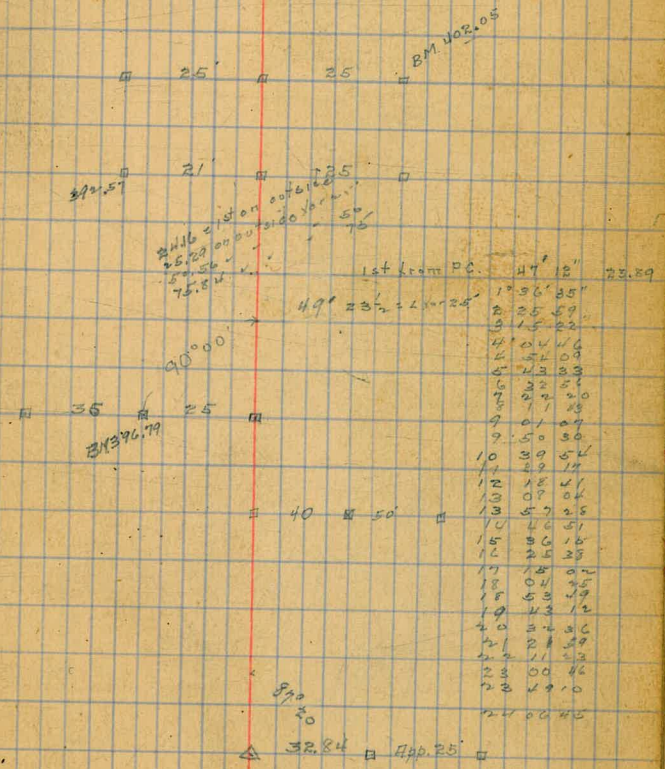 BM. 402.05
25' 25
21' 25
392.57
24.16 = 1st on outside
25.29 on outside for
50.56 50'
75.84 75'
1st from P.C. 47' 12" 23.89
49' 23½ = L for 25'
1° 36' 35"
2 25 59
3 15 22
4 04 46
4 54 09
5 43 33
6 32 56
7 22 20
8 11 43
9 01 07
9 50 30
10 39 54
11 29 17
12 18 41
13 08 04
13 57 28
14 46 51
15 36 15
16 25 38
17 15 02
18 04 25
18 53 49
19 43 12
20 32 36
21 21 59
22 11 23
23 00 46
23 49 10
24 06 45
90°00'
35 25
BM 396.79
40 50'
870
20
32.84 App. 25